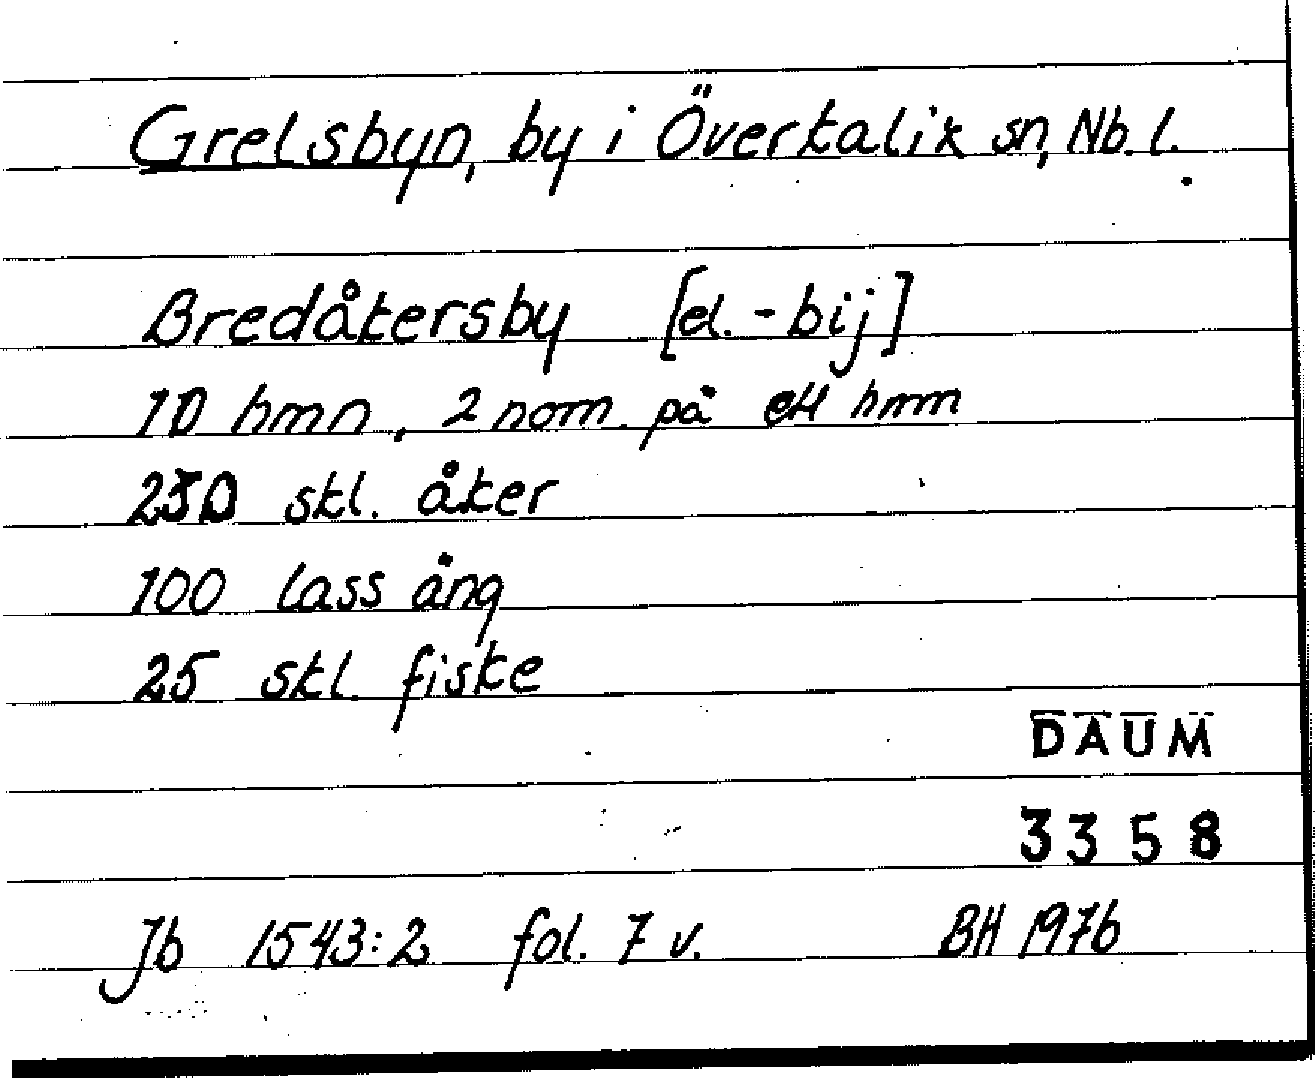 Grelsbyn, by i Överkalix sn, Nb. l.
Bredåkersby [el. -bij]
10 hmn, 2 nom. på ett hmm
250 skl. åker
100 lass äng
25 skl. fiske
DAUM
3358
Jb 1543:2 fol. 7 v. BH 1976